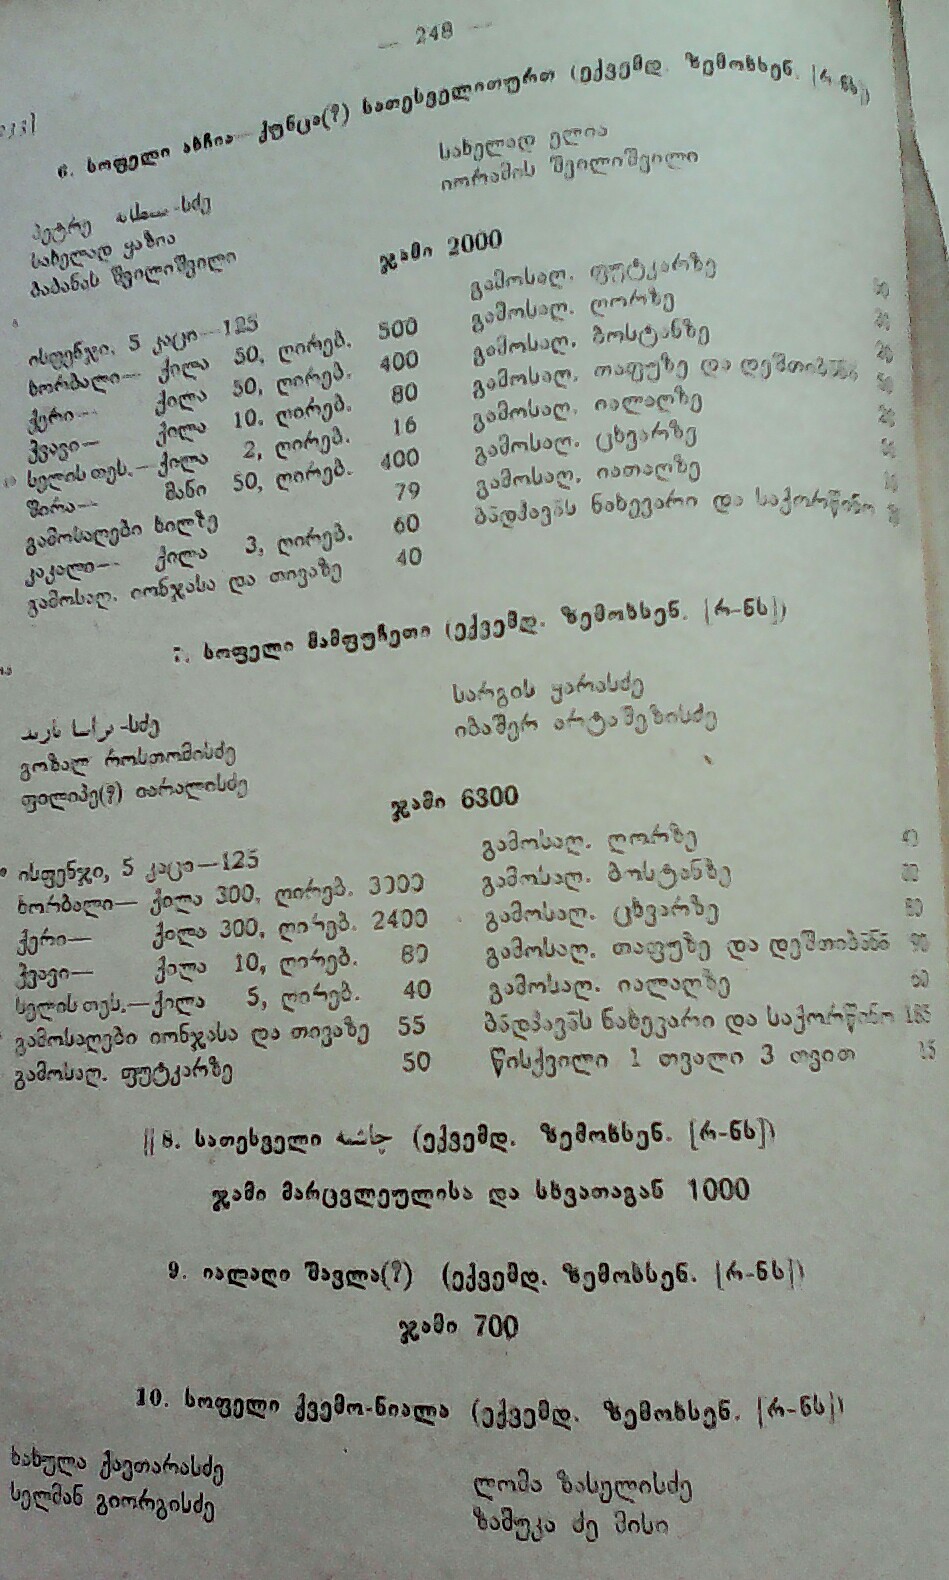 — 248 —
6. სოფელი ახჩია—ქუნცა(?) სათესველითურთ (ექვემდ. ზემოხსენ. [რ-ნს])
პეტრე -სძე
სახელად ყაზია
ბაბანას შვილიშვილი
სახელად ელია
იორამის შვილიშვილი
ჯამი 2000
ისფენჯი, 5 კაცი—125
ხორბალი— ქილა 50, ღირებ. 500
ქერი— ქილა 50, ღირებ. 400
ჭვავი— ქილა 10, ღირებ. 80
სელის თეს.—ქილა 2, ღირებ. 16
შირა— მანი 50, ღირებ. 400
გამოსაღები ხილზე 79
კაკალი— ქილა 3, ღირებ. 60
გამოსაღ. იონჯასა და თივაზე 40
გამოსაღ. ფუტკარზე
გამოსაღ. ღორზე
გამოსაღ. ბოსტანზე
გამოსაღ. თაფუზე და დეშთიბანი
გამოსაღ. იალაღზე
გამოსაღ. ცხვარზე
გამოსაღ. იათაღზე
ბადჰავას ნახევარი და საქორწინო
7. სოფელი მამფუჩეთი (ექვემდ. ზემოხსენ. [რ-ნს])
-სძე
გოზალ როსთომისძე
ფილიპე(?) თარალისძე
სარგის ყარასძე
იბაშერ არტაშეზისძე
ჯამი 6300
ისფენჯი, 5 კაცი—125
ხორბალი— ქილა 300, ღირებ. 3000
ქერი— ქილა 300, ღირებ. 2400
ჭვავი— ქილა 10, ღირებ. 80
სელის თეს.—ქილა 5, ღირებ. 40
გამოსაღები იონჯასა და თივაზე 55
გამოსაღ. ფუტკარზე 50
გამოსაღ. ღორზე
გამოსაღ. ბოსტანზე
გამოსაღ. ცხვარზე
გამოსაღ. თაფუზე და დეშთიბანი
გამოსაღ. იალაღზე
ბადჰავას ნახევარი და საქორწინო
წისქვილი 1 თვალი 3 თვით 15
|| 8. სათესველი (ექვემდ. ზემოხსენ. [რ-ნს])
ჯამი მარცვლეულისა და სხვათაგან 1000
9. იალაღი შავლა(?) (ექვემდ. ზემოხსენ. [რ-ნს])
ჯამი 700
10. სოფელი ქვემო-ნიალა (ექვემდ. ზემოხსენ. [რ-ნს])
ხახულა ქავთარასძე
სელმან გიორგისძე
ლომა ზასელისძე
ზამუკა ძე მისი